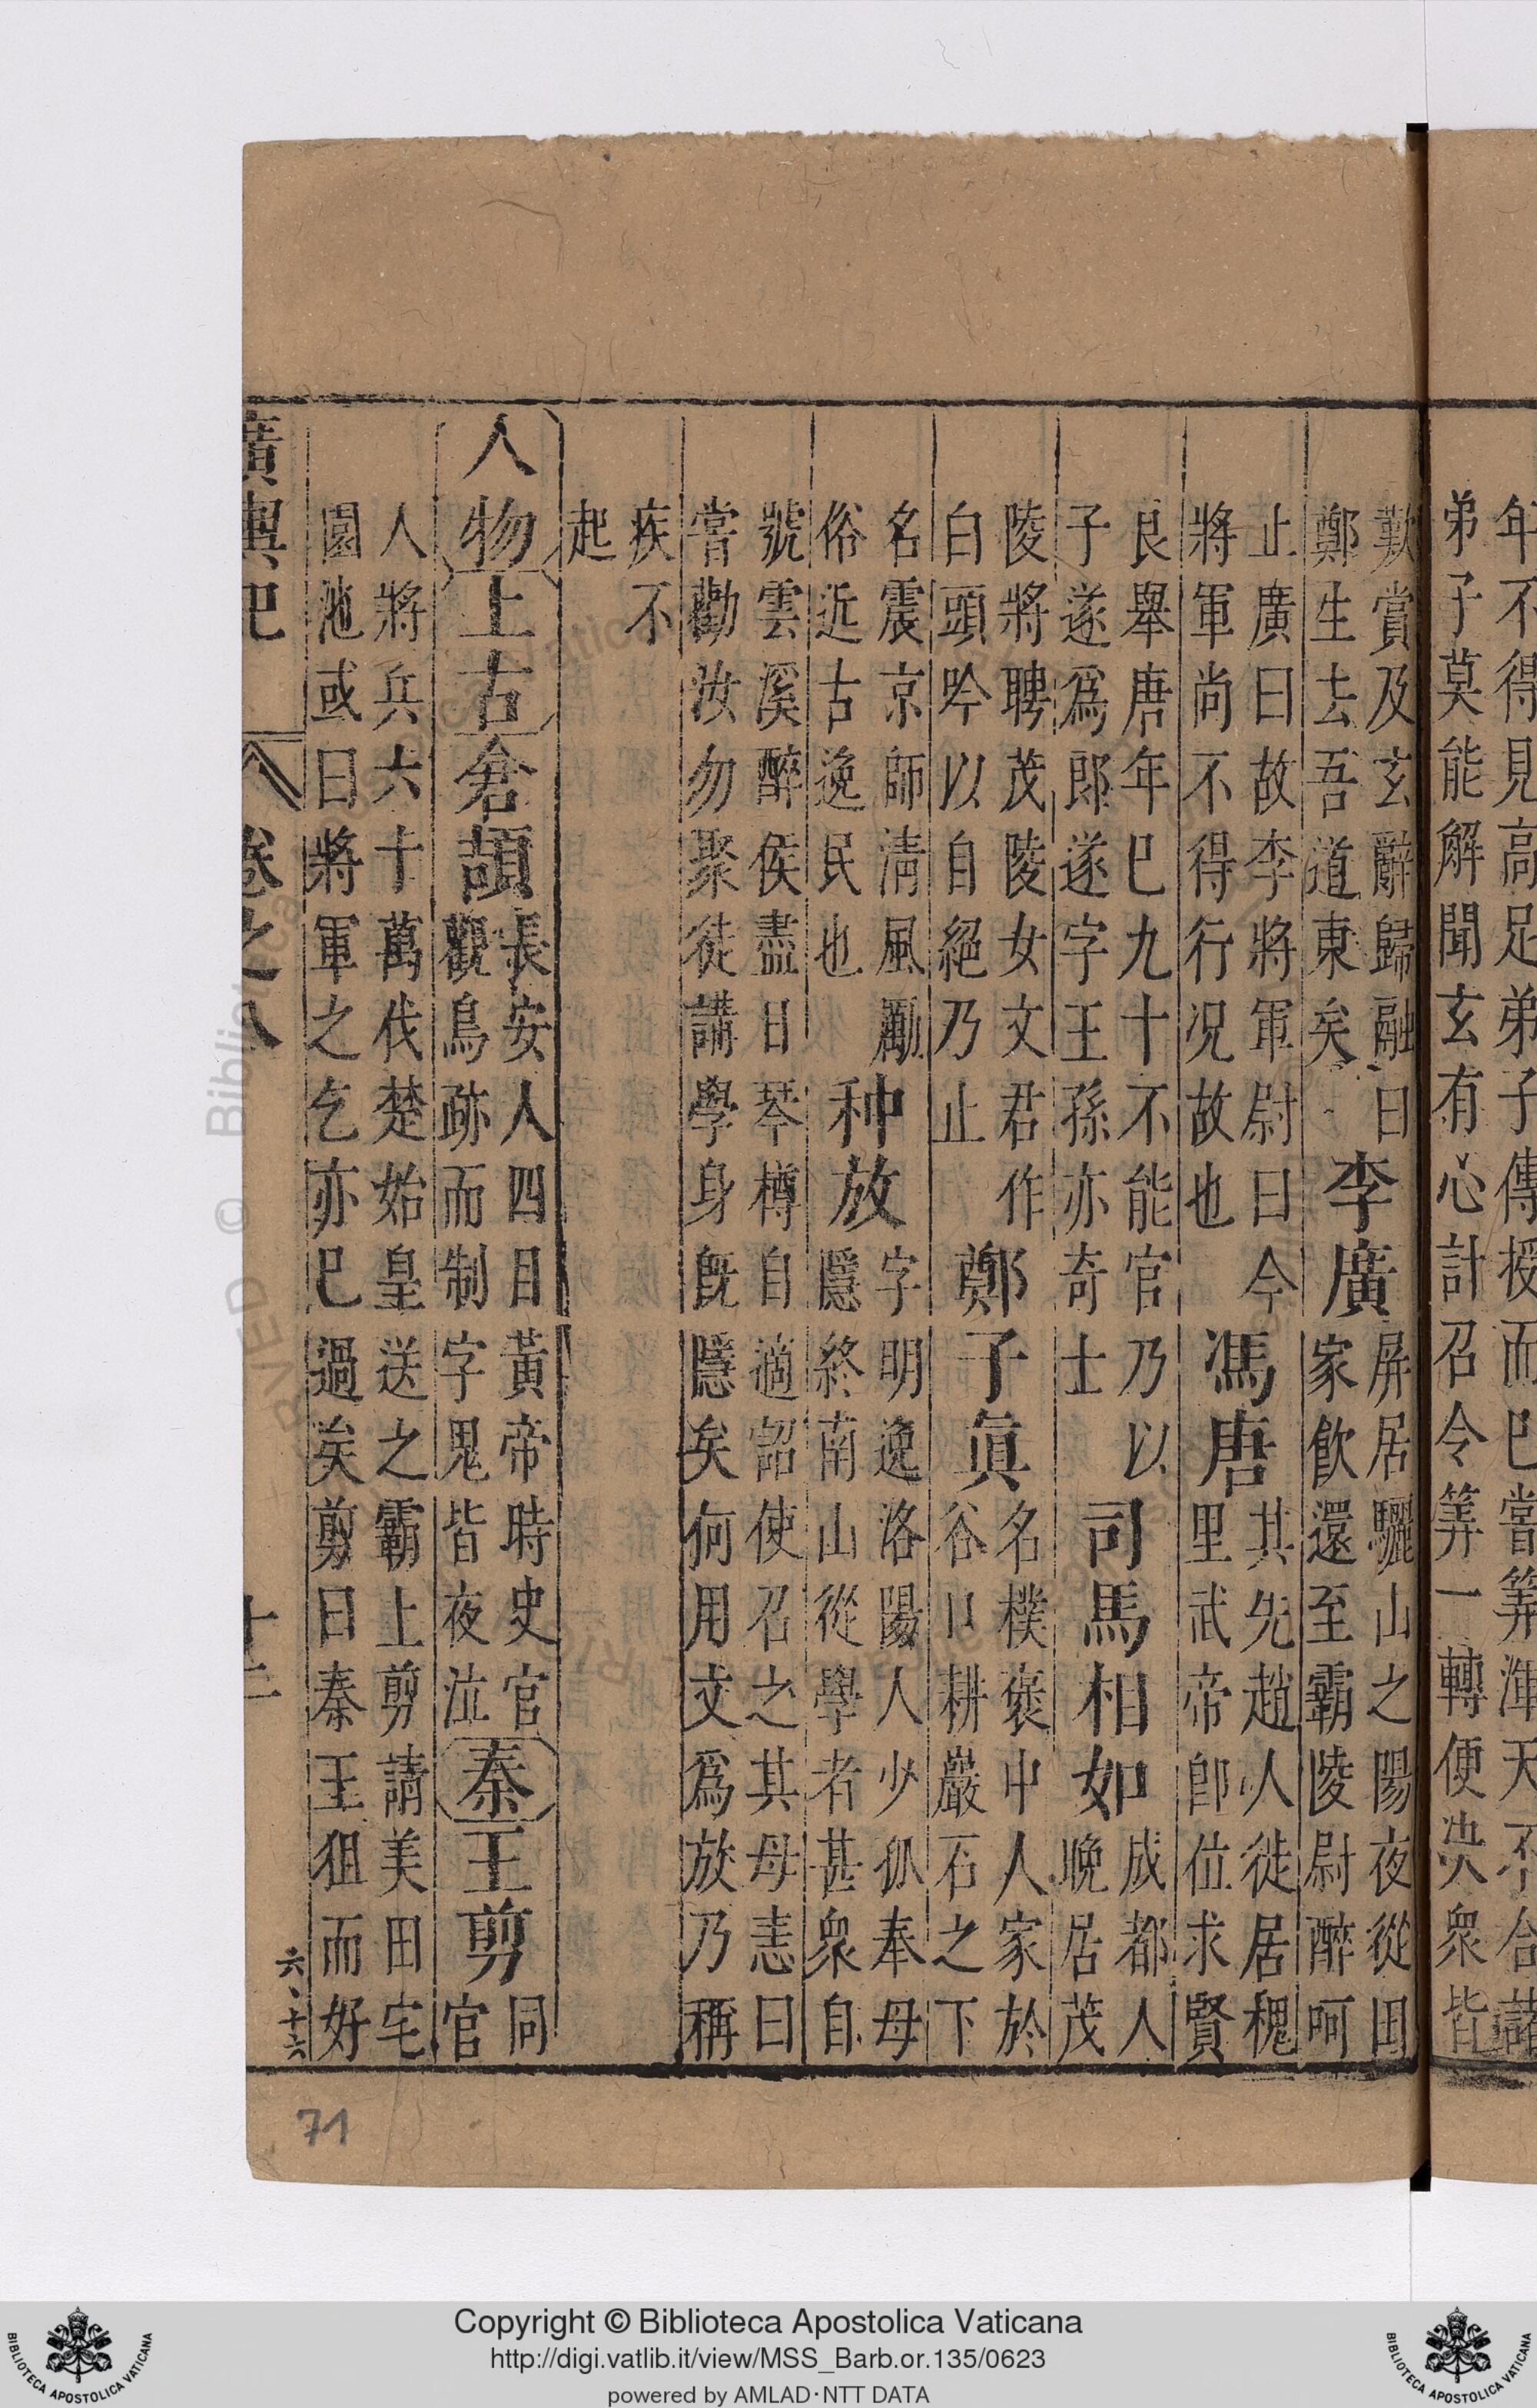 年不得見高足弟子傳授而巳嘗筭渾天不合諸
弟子莫能解聞玄有心計召令筭一轉便決衆皆
歎賞及玄辭歸融曰
鄭生去吾道東矣
李廣
屏居驪山之陽夜從田
家飲還至霸陵尉醉呵
止廣曰故李將軍尉曰今
將軍尚不得行况故也
馮唐
其先趙人徙居槐
里武帝卽位求賢
良舉唐年巳九十不能官乃以
子遂爲郎遂字王孫亦奇士
司馬相如
成都人
晚居茂
陵將聘茂陵女文君作
白頭吟以自絕乃止
鄭子眞
名樸褒中人家於
谷口耕巖石之下
名震京師淸風勵
俗近古逸民也
种放
字明逸洛陽人少孤奉母
隱終南山從學者甚衆自
號雲溪醉侯盡日琴樽自適詔使召之其母恚曰
嘗勸汝勿聚徒講學身旣隱矣何用文爲放乃稱
疾不
起
人物
上古
倉頡
長安人四目黃帝時史官
觀鳥跡而制字鬼皆夜泣
秦
王剪
同
官
人將兵六十萬伐楚始皇送之霸上剪請美田宅
園池或曰將軍之乞亦巳過矣剪曰秦王狙而好
廣輿記
卷之八
十二
六、十六
71
Copyright © Biblioteca Apostolica Vaticana
http://digi.vatlib.it/view/MSS_Barb.or.135/0623
powered by AMLAD·NTT DATA
BIBLIOTECA APOSTOLICA VATICANA
BIBLIOTECA APOSTOLICA VATICANA